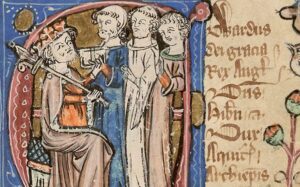 Dwardus
dei gracia
Rex Angl'
Dns
Hibn'
Dux
Aquit'
Archiepis